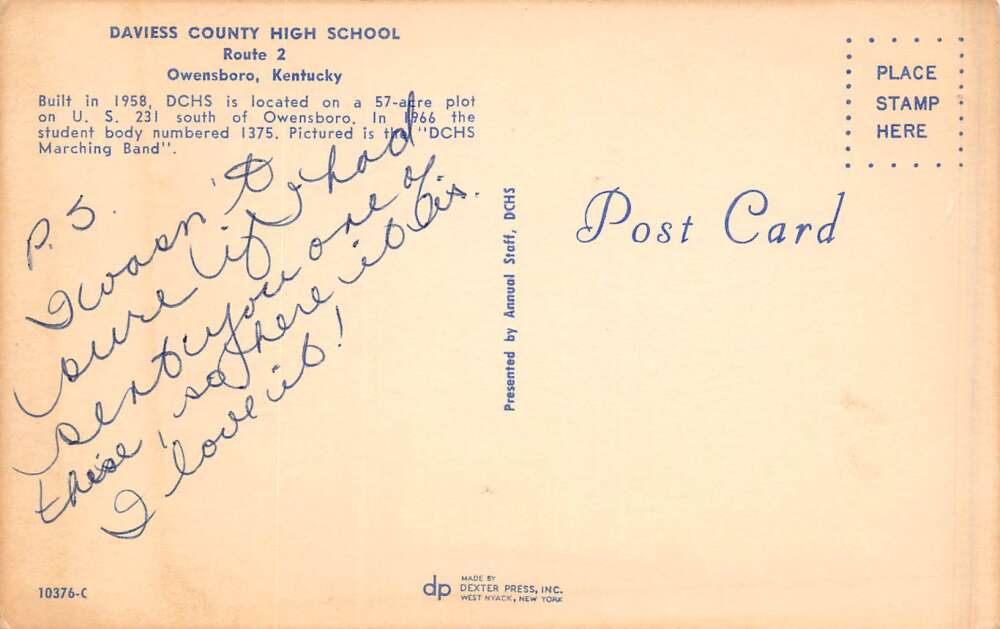 DAVIESS COUNTY HIGH SCHOOL
Route 2
Owensboro, Kentucky
Built in 1958, DCHS is located on a 57-acre plot
on U. S. 231 south of Owensboro. In 1966 the
student body numbered 1375. Pictured is the "DCHS
Marching Band".
P.S.
I wasn't
sure if I had
sent you one of
these, so here it is.
I love it!
Presented by Annual Staff, DCHS
PLACE
STAMP
HERE
Post Card
10376-C
dp
MADE BY
DEXTER PRESS, INC.
WEST NYACK, NEW YORK